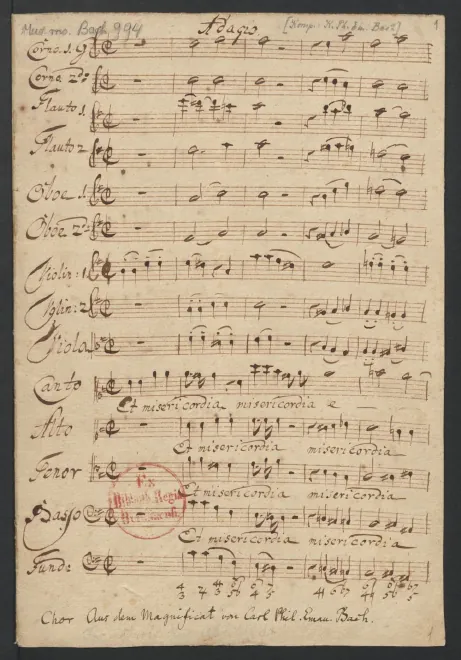 Mus. ms. Bach, 994
Adagio
[Komp: K. Ph. Em. Bach]
1
Corno. 1. G
Corno 2do
Flauto 1.
Flauto 2
Oboe 1.
Oboe 2.
Violin: 1.
Violin: 2.
Viola
Canto
Et misericordia misericordia e
Alto
Et misericordia misericordia
Tenor
Et misericordia misericordia
Basso
Et misericordia misericordia
Ex
Biblioth. Regia
Berolinensi.
Fund
Chor Aus dem Magnificat von Carl Phil. Emau. Bach.